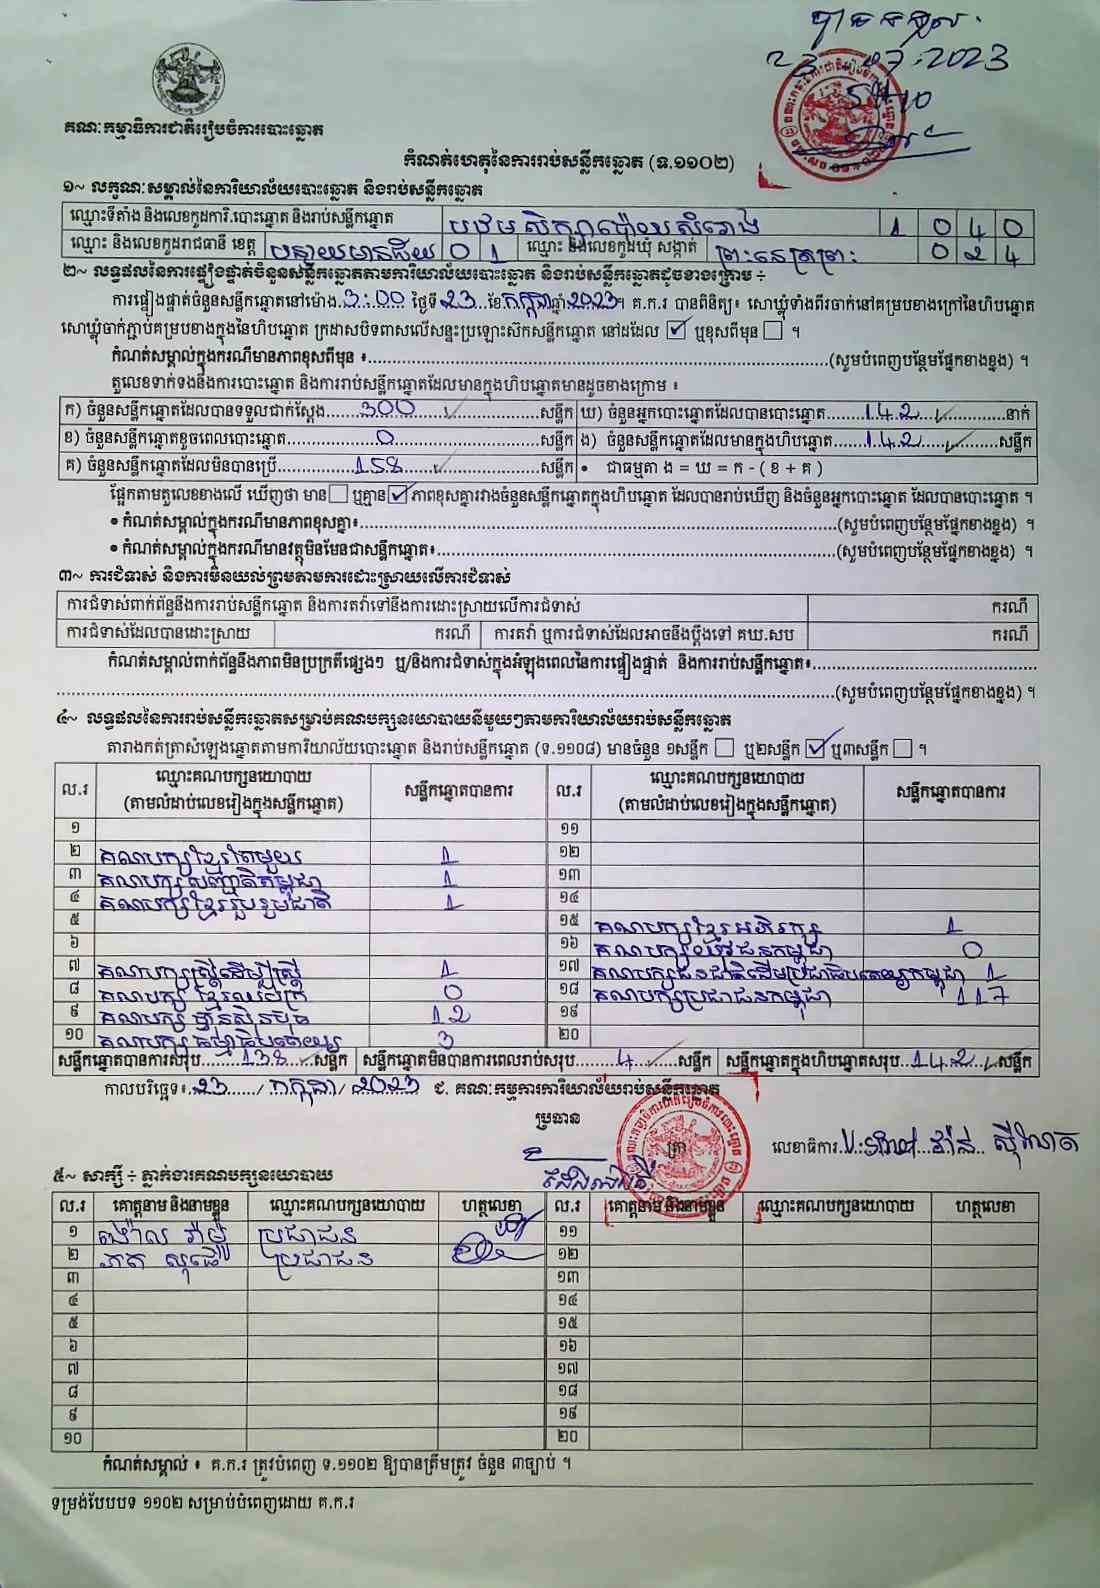 បានទទួល
23.07.2023
គណៈកម្មាធិការជាតិរៀបចំការបោះឆ្នោត
កំណត់ហេតុនៃការរាប់សន្លឹកឆ្នោត (ទ.១១០២)
១~ លក្ខណៈសម្គាល់នៃការិយាល័យបោះឆ្នោត និងរាប់សន្លឹកឆ្នោត
ឈ្មោះទីតាំង និងលេខកូដការិ.បោះឆ្នោត និងរាប់សន្លឹកឆ្នោត បឋមសិក្សាប៉ោយសំរោង 1 0 4 0
ឈ្មោះ និងលេខកូដរាជធានី ខេត្ត បន្ទាយមានជ័យ 0 1 ឈ្មោះ និងលេខកូដឃុំ សង្កាត់ ព្រះនេត្រព្រះ 0 2 4
២~ លទ្ធផលនៃការផ្ទៀងផ្ទាត់ចំនួនសន្លឹកឆ្នោតតាមការិយាល័យបោះឆ្នោត និងរាប់សន្លឹកឆ្នោតដូចខាងក្រោម ÷
ការផ្ទៀងផ្ទាត់ចំនួនសន្លឹកឆ្នោតនៅម៉ោង 3:00 ថ្ងៃទី 23 ខែ កក្កដា ឆ្នាំ 2023 ។ គ.ក.រ បានពិនិត្យ៖ សោឃ្លុំទាំងពីរចាក់នៅគម្របខាងក្រៅនៃហិបឆ្នោត
សោឃ្លុំចាក់ភ្ជាប់គម្របខាងក្នុងនៃហិបឆ្នោត ក្រដាសបិទពាសលើសន្ទះប្រឡោះស៊កសន្លឹកឆ្នោត នៅដដែល ☑ ឬខុសពីមុន ☐ ។
កំណត់សម្គាល់ក្នុងករណីមានភាពខុសពីមុន ៖..........(សូមបំពេញបន្ថែមផ្នែកខាងខ្នង) ។
តួលេខទាក់ទងនឹងការបោះឆ្នោត និងការរាប់សន្លឹកឆ្នោតដែលមានក្នុងហិបឆ្នោតមានដូចខាងក្រោម ៖
ក) ចំនួនសន្លឹកឆ្នោតដែលបានទទួលជាក់ស្តែង 300 សន្លឹក ឃ) ចំនួនអ្នកបោះឆ្នោតដែលបានបោះឆ្នោត 142 នាក់
ខ) ចំនួនសន្លឹកឆ្នោតខូចពេលបោះឆ្នោត 0 សន្លឹក ង) ចំនួនសន្លឹកឆ្នោតដែលមានក្នុងហិបឆ្នោត 142 សន្លឹក
គ) ចំនួនសន្លឹកឆ្នោតដែលមិនបានប្រើ 158 សន្លឹក • ជាធម្មតា ង = ឃ = ក - ( ខ + គ )
ផ្អែកតាមតួលេខខាងលើ ឃើញថា មាន ☐ ឬគ្មាន ☑ ភាពខុសគ្នារវាងចំនួនសន្លឹកឆ្នោតក្នុងហិបឆ្នោត ដែលបានរាប់ឃើញ និងចំនួនអ្នកបោះឆ្នោត ដែលបានបោះឆ្នោត ។
• កំណត់សម្គាល់ក្នុងករណីមានភាពខុសគ្នា៖..........(សូមបំពេញបន្ថែមផ្នែកខាងខ្នង) ។
• កំណត់សម្គាល់ក្នុងករណីមានវត្ថុមិនមែនជាសន្លឹកឆ្នោត៖..........(សូមបំពេញបន្ថែមផ្នែកខាងខ្នង) ។
៣~ ការជំទាស់ និងការមិនយល់ព្រមតាមការដោះស្រាយលើការជំទាស់
ការជំទាស់ពាក់ព័ន្ធនឹងការរាប់សន្លឹកឆ្នោត និងការតវ៉ាទៅនឹងការដោះស្រាយលើការជំទាស់ ករណី
ការជំទាស់ដែលបានដោះស្រាយ ករណី ការតវ៉ា ឬការជំទាស់ដែលអាចនឹងប្តឹងទៅ គឃ.សប ករណី
កំណត់សម្គាល់ពាក់ព័ន្ធនឹងភាពមិនប្រក្រតីផ្សេងៗ ឬ/និងការជំទាស់ក្នុងអំឡុងពេលនៃការផ្ទៀងផ្ទាត់ និងការរាប់សន្លឹកឆ្នោត៖..........
..........(សូមបំពេញបន្ថែមផ្នែកខាងខ្នង) ។
៤~ លទ្ធផលនៃការរាប់សន្លឹកឆ្នោតសម្រាប់គណបក្សនយោបាយនីមួយៗតាមការិយាល័យរាប់សន្លឹកឆ្នោត
តារាងកត់ត្រាសំឡេងឆ្នោតតាមការិយាល័យបោះឆ្នោត និងរាប់សន្លឹកឆ្នោត (ទ.១១០៨) មានចំនួន ១សន្លឹក ☐ ឬ២សន្លឹក ☑ ឬ៣សន្លឹក ☐ ។
ល.រ ឈ្មោះគណបក្សនយោបាយ (តាមលំដាប់លេខរៀងក្នុងសន្លឹកឆ្នោត) សន្លឹកឆ្នោតបានការ ល.រ ឈ្មោះគណបក្សនយោបាយ (តាមលំដាប់លេខរៀងក្នុងសន្លឹកឆ្នោត) សន្លឹកឆ្នោតបានការ
១ ១១
២ គណបក្សខ្មែរតែមួយ 1 ១២
៣ គណបក្សសញ្ជាតិកម្ពុជា 1 ១៣
៤ គណបក្សខ្មែររួបរួមជាតិ 1 ១៤
៥ ១៥ គណបក្សខ្មែរអភិរក្ស 1
៦ ១៦ គណបក្សយុវជនកម្ពុជា 0
៧ គណបក្សស្ត្រីដើម្បីស្ត្រី 1 ១៧ គណបក្សជនជាតិដើមប្រជាធិបតេយ្យកម្ពុជា 1
៨ គណបក្សខ្មែរឈប់ក្រ 0 ១៨ គណបក្សប្រជាជនកម្ពុជា 117
៩ គណបក្សហ្វ៊ុនស៊ិនប៉ិច 12 ១៩
១០ គណបក្សធម្មាធិបតេយ្យ 3 ២០
សន្លឹកឆ្នោតបានការសរុប 138 សន្លឹក សន្លឹកឆ្នោតមិនបានការពេលរាប់សរុប 4 សន្លឹក សន្លឹកឆ្នោតក្នុងហិបឆ្នោតសរុប 142 សន្លឹក
កាលបរិច្ឆេទ៖ 23 / កក្កដា / 2023 ជ. គណៈកម្មការការិយាល័យរាប់សន្លឹកឆ្នោត
ប្រធាន
ត្រា
លេខាធិការ
៥~ សាក្សី ÷ ភ្នាក់ងារគណបក្សនយោបាយ
ល.រ គោត្តនាម និងនាមខ្លួន ឈ្មោះគណបក្សនយោបាយ ហត្ថលេខា ល.រ គោត្តនាម និងនាមខ្លួន ឈ្មោះគណបក្សនយោបាយ ហត្ថលេខា
១ ប្រជាជន ១១
២ ប្រជាជន ១២
៣ ១៣
៤ ១៤
៥ ១៥
៦ ១៦
៧ ១៧
៨ ១៨
៩ ១៩
១០ ២០
កំណត់សម្គាល់ ៖ គ.ក.រ ត្រូវបំពេញ ទ.១១០២ ឱ្យបានត្រឹមត្រូវ ចំនួន ៣ច្បាប់ ។
ទម្រង់បែបបទ ១១០២ សម្រាប់បំពេញដោយ គ.ក.រ